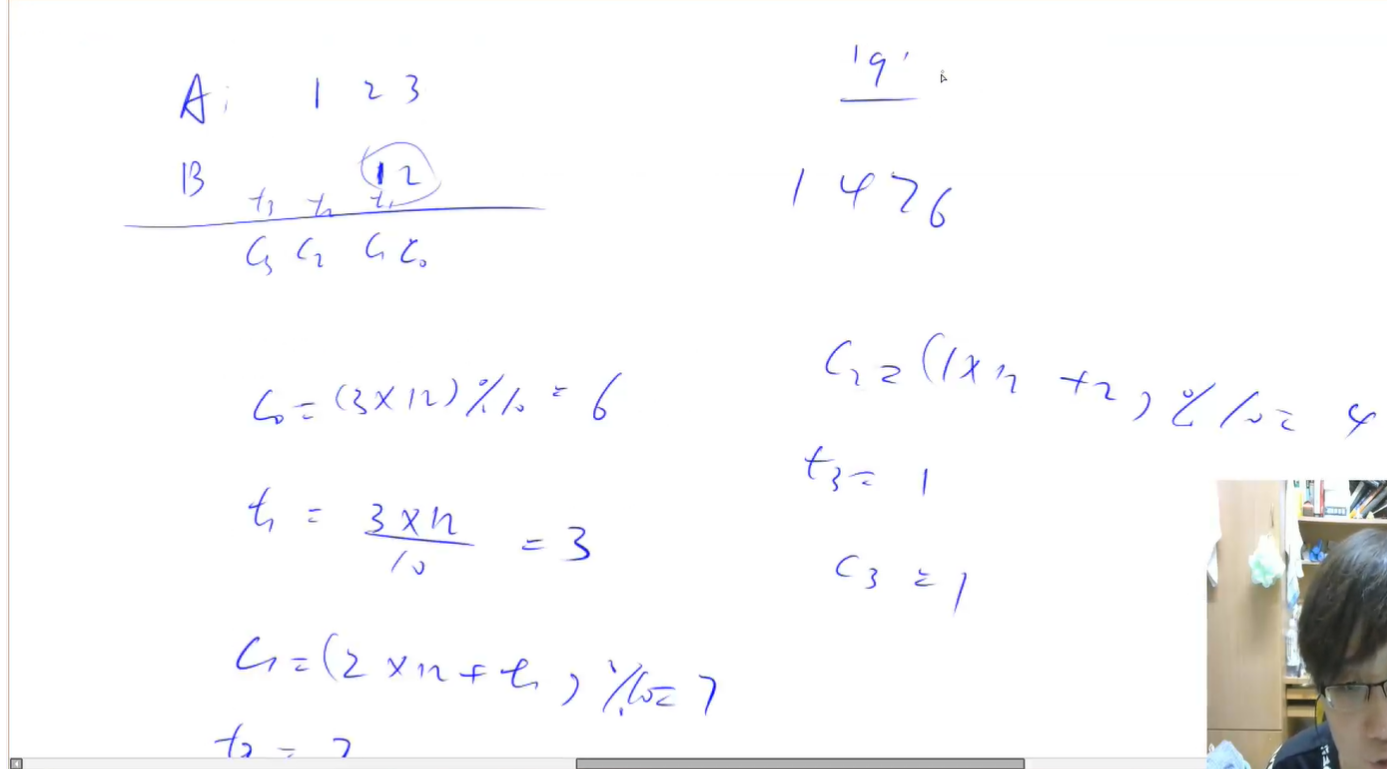 A: 1 2 3
B 12
t3 t2 t1
C3 C2 C1 C0
C0 = (3×12) % 10 = 6
t1 = 3×12 / 10 = 3
C1 = (2×12 + t1) % 10 = 7
t2 = 2
'9'
1476
C2 = (1×12 + 2) % 10 = 4
t3 = 1
C3 = 1